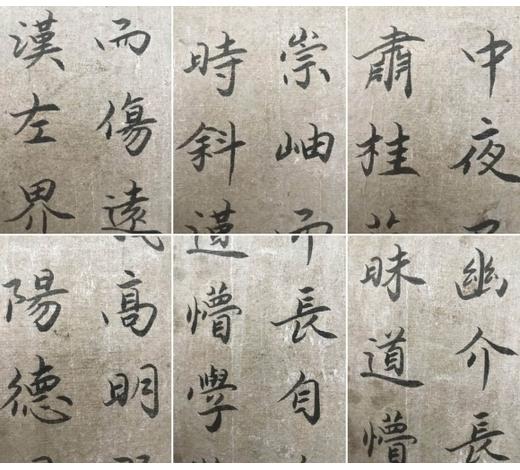 而傷遠
漢左界
崇岫
時斜漢
中夜
肅桂
高明
陽德
長自
道懵學
幽介長
昧道懵